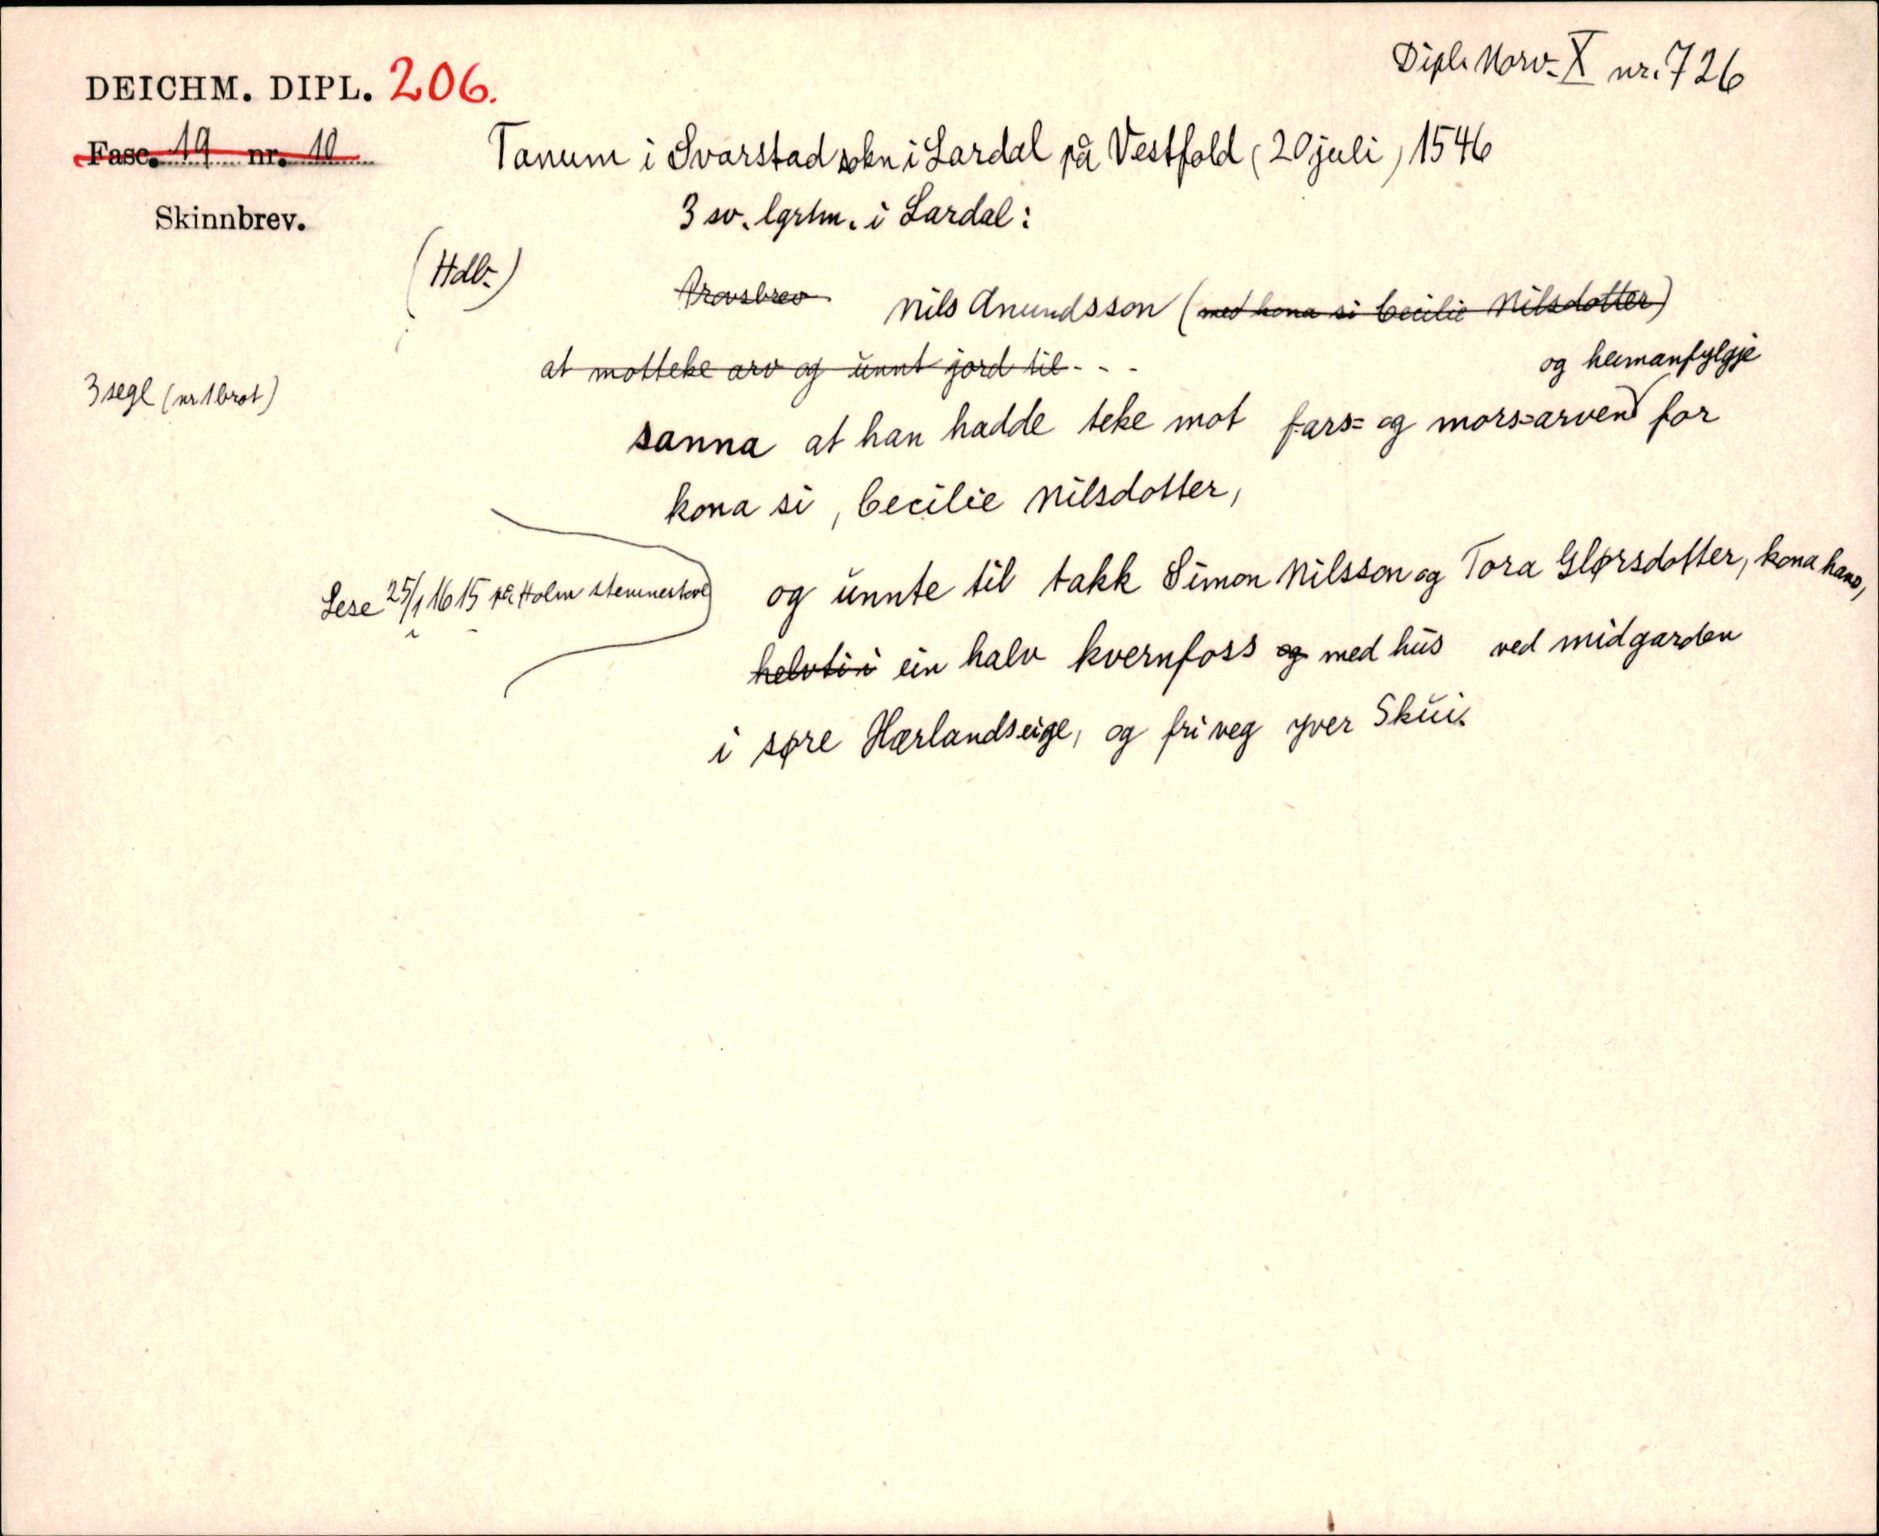 DEICHM. DIPL. 206.
Dipl. Norv. X nr. 726
Fasc. 19 nr. 10
Tanum i Svarstad sokn i Lardal på Vestfold (20 juli) 1546
Skinnbrev.
3 sv. lgrtm. i Lardal:
(Hdb.)
Nils Anundsson (med kona si Cecilie Nilsdotter)
at motteke arv og unnt jord til - - -
og heimanfylgje
3 segl (nr 1 brot)
sanna at han hadde teke mot fars- og mors-arven for
kona si, Cecilie Nilsdotter,
Lese 25/1 1615 på Holm stemnestove
og unnte til takk Simon Nilsson og Tora Glørsdotter, kona hans,
helvti i ein halv kvernfoss og med hus ved midgarden
i søre Hærlandseige, og fri veg yver Skui.